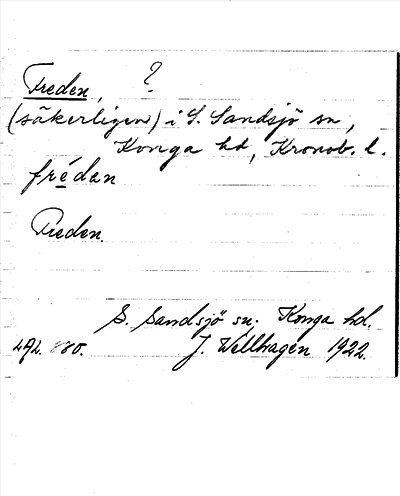 Freden, ?
(säkerligen) i S. Sandsjö sn,
Konga hd, Kronob. l.
frédan
Freden.
S. Sandsjö sn. Konga hd.
J. Wellhagen 1922.